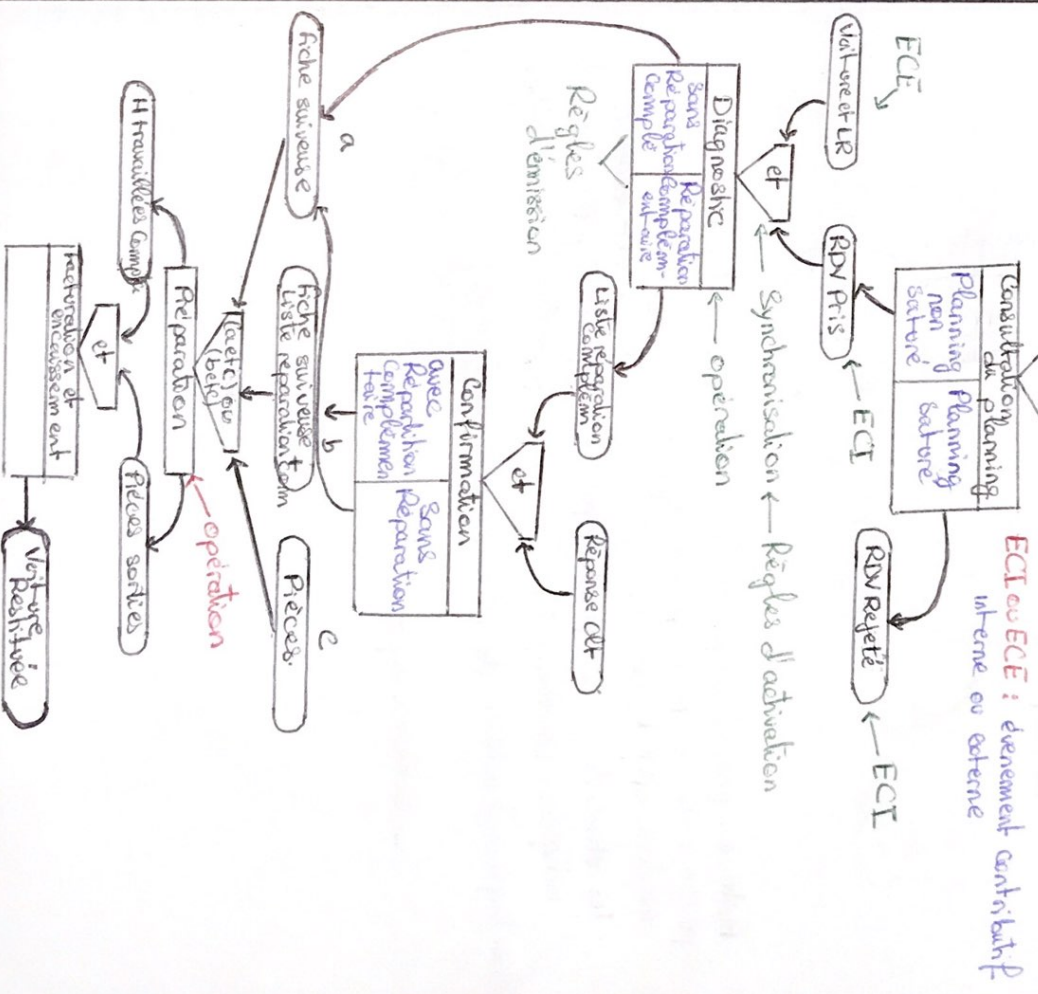 ECI ou ECE : évenement contributif
interne ou externe
Consultation
du planning
Planning
non
saturé
Planning
saturé
ECE
Voiture et LR
RDV Pris
← ECI
RDV Rejeté
← ECI
et
← Synchronisation ← Règles d'activation
Diagnostic
sans
Réparation
Complé
Réparation
Complém-
entaire
← opération
Règles
d'émission
Liste réparation
complém
Réponse clt
et
Confirmation
avec
Répartition
complémen
taire
Sans
Réparation
a
b
c
fiche suiveuse
fiche suiveuse +
Liste réparation Com
Pièces.
(a et c) ou
(b et c)
Réparation
← opération
H travaillées Compl
Pièces sorties
et
Facturation et
encaissement
Voiture
Restituée